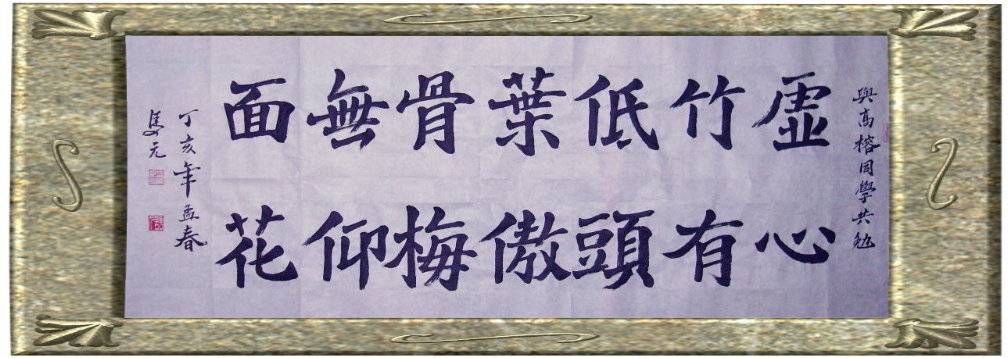 與高榕同學共勉
虛心
竹有
低頭
葉傲
骨梅
無仰
面花
丁亥年孟春
元